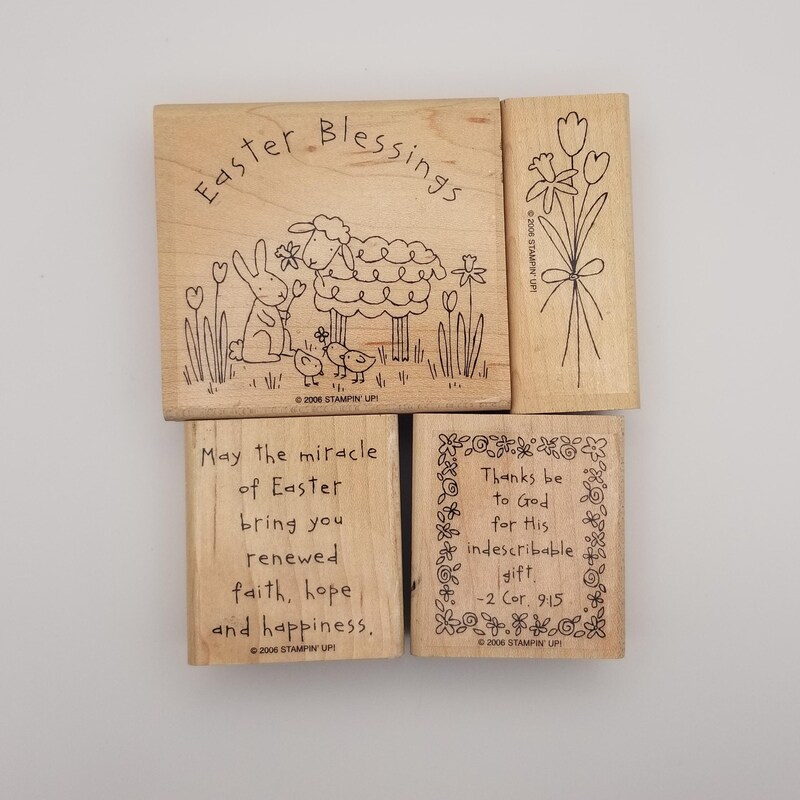 Easter Blessings
© 2006 STAMPIN' UP!
© 2006 STAMPIN' UP!
May the miracle
of Easter
bring you
renewed
faith, hope
and happiness.
© 2006 STAMPIN' UP!
Thanks be
to God
for His
indescribable
gift.
-2 Cor. 9:15
© 2006 STAMPIN' UP!